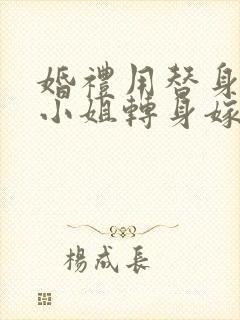 婚禮用替身
小姐轉身嫁
楊成長